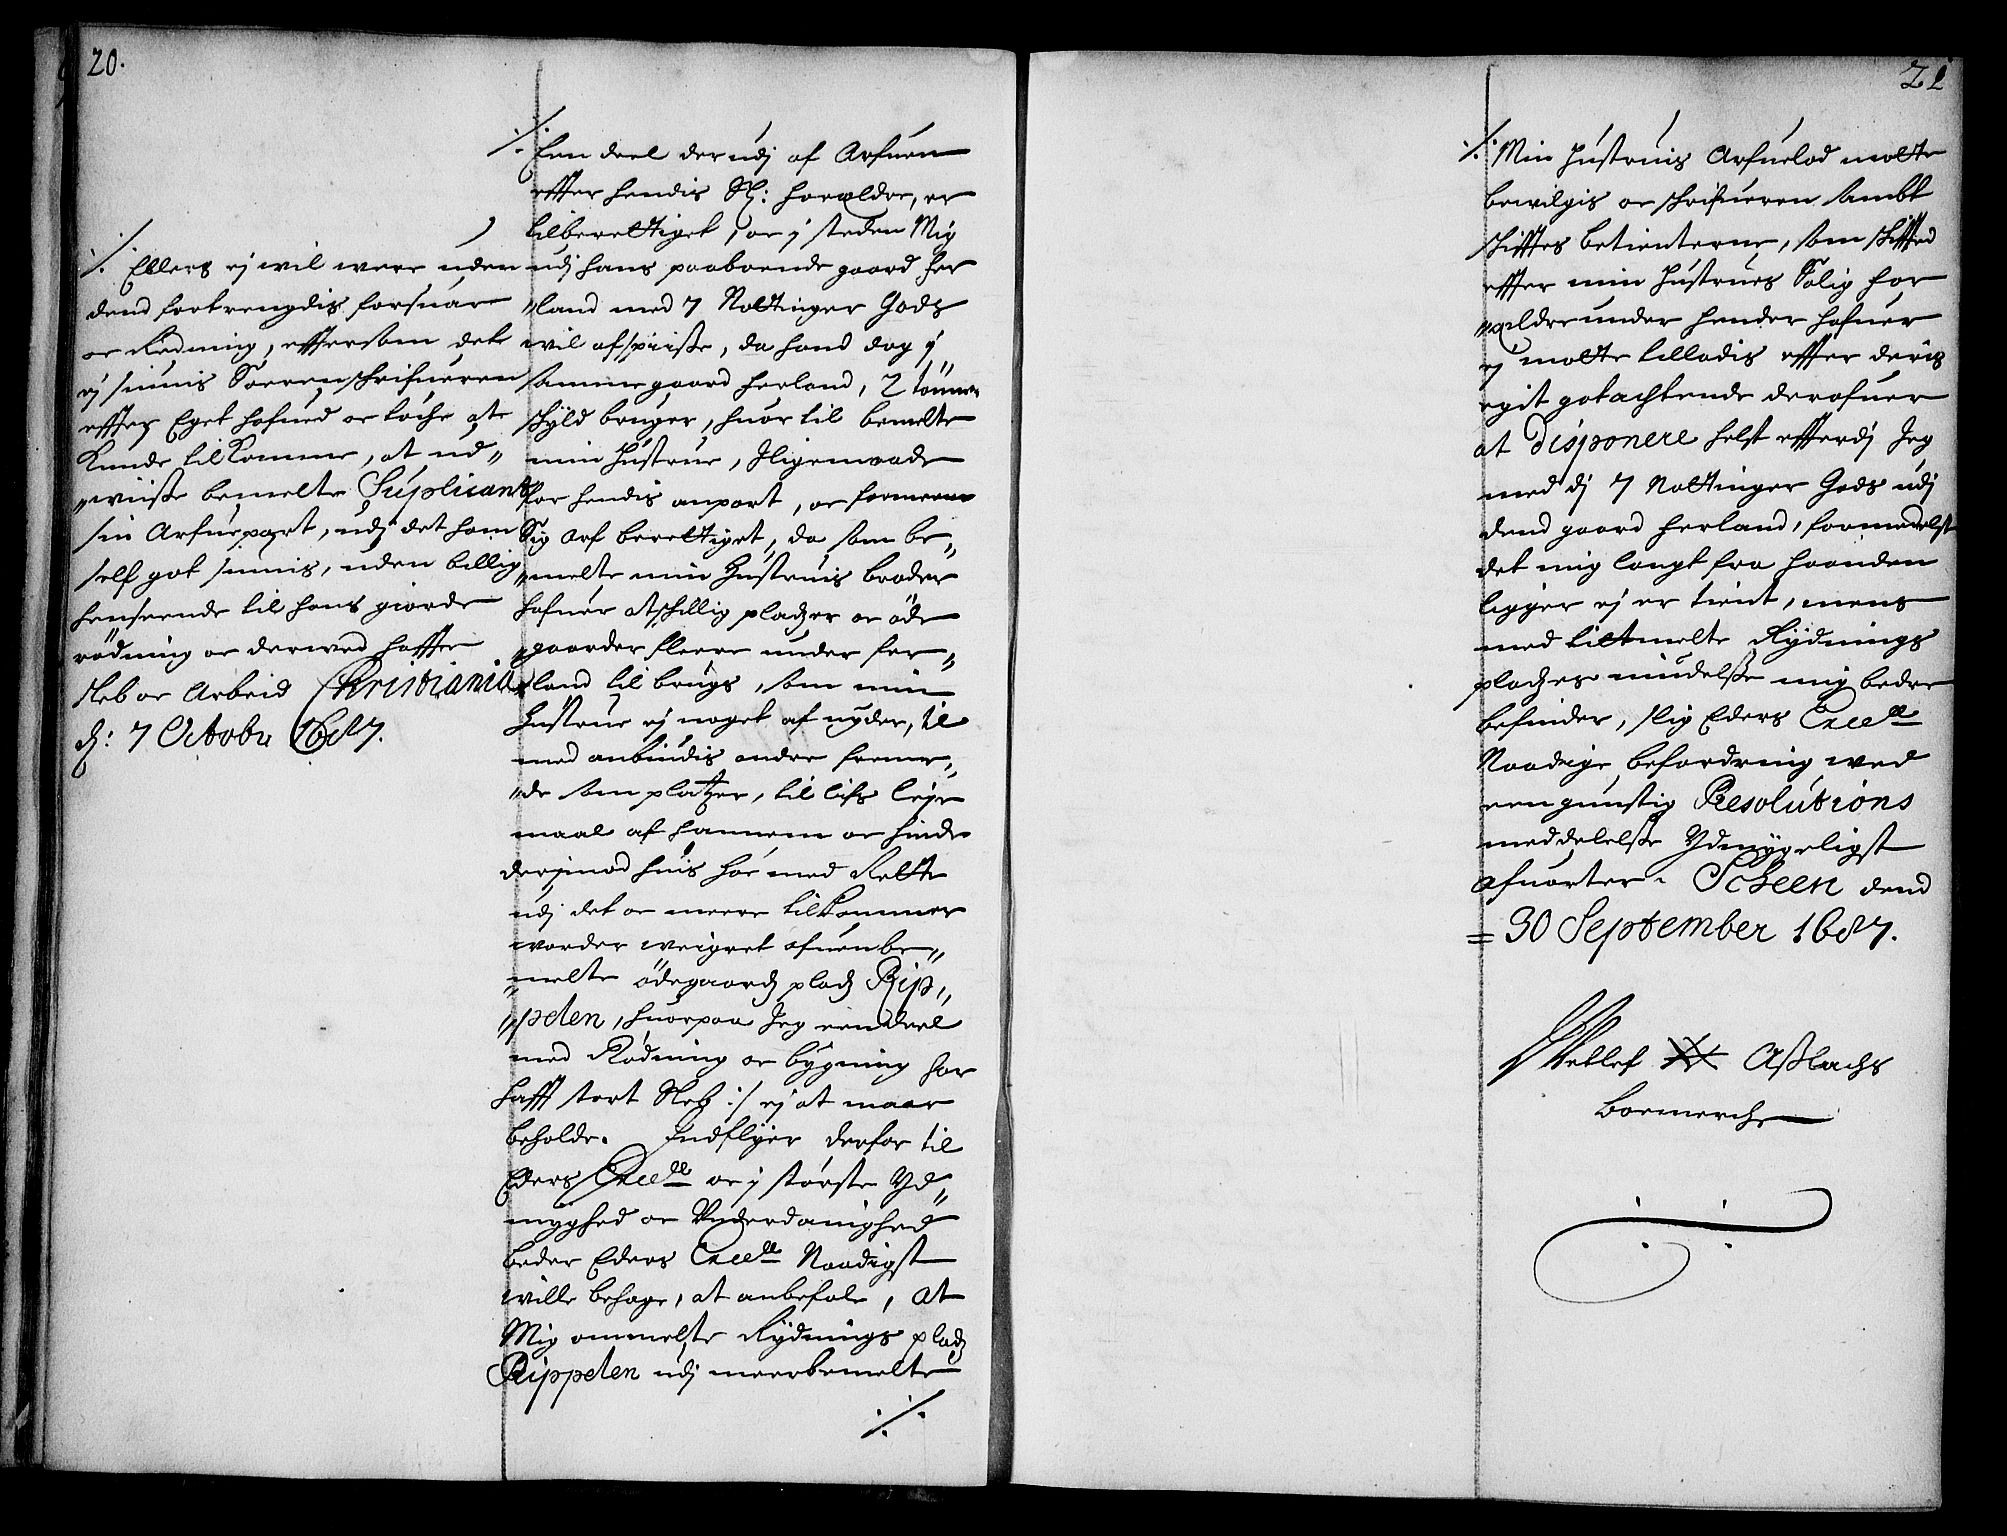 20.
./. Ellers ej wil were uden
dend fortrengdis forsuar
oc Redning, efftersom det
ej siunis Sorenschrifueren
effter Eget hofued oc tøche at
Kunde tilkomme, at ud„
„wiisse bemelte Supplicant
sin Arfuepart, udj det ham
self got siunis, uden billig
henseende til hans giorde
rödning oc derwed haffte
Sleb oc Arbeid Christiania
d: 7 Octobr 1687.
./. Een deel der udj af Arfuen
effter hendis Sl: forældre, er
tilberettiget, oc j steden Mig
udj hans paaboende gaard Her
„land med 7 Nottinger Gods
wil afspiisse, da hand dog j
samme gaard Herland, 2 tönner
schyld bruger, huor til bemelte
min Hustrue, Iligemaade
for hendis anpart, oc formeene
Sig arf berettiget, da som be„
„melte min Hustruis broder
hafuer Atschillig pladzer oc öde
„gaarder fleere under Her„
„land til brugs, som min
Hustrue ej noget af nyder, til
med anbindis andre freme„
„de som platzer, til lifs leye
maal af hannem oc hinde
derjmod huis hør med Rette
udj det oc meere tilkommer
worder weigret ofuenbe„
„melte ödegaards plads Rip„
„pelen, huorpaa Jeg eendeel
med Rödning oc bygning har
hafft stort Sleb :/ ej at maae
beholde. Indflyer derfor til
Eders Excell oc j største Yd„
myghed oc Underdanighed
beder Eders Excell Naadigst
wille behage, at anbefale, at
Mig ommelte Rydnings plads
Rippelen udj meerbemelte
./.
21
./. Min Hustruis Arfuelod motte
bewilgis oc schrifueren sambt
schifftes betienterne, som schiffted
effter min Hustrues Salig for
„ældre under hender hafuer
ej motte tilladis effter deris
egit gotachtende derofuer
at Disponere helst efferdj Jeg
med dj 7 Nottinger Gods udj
dend gaard Herland, formedelst
det mig langt fra haanden
ligger ej er tient, mens
med tiltmelte Rydnings
pladzes niudelsse mig bedre
befinder, slig Eders Excell
Naadige befordring wed
een gunstig Resolutions
meddelelsse Ydmygeligst
Afuarter. Scheen dend
= 30 September 1687.
Detlef Aslachs
Boemerch